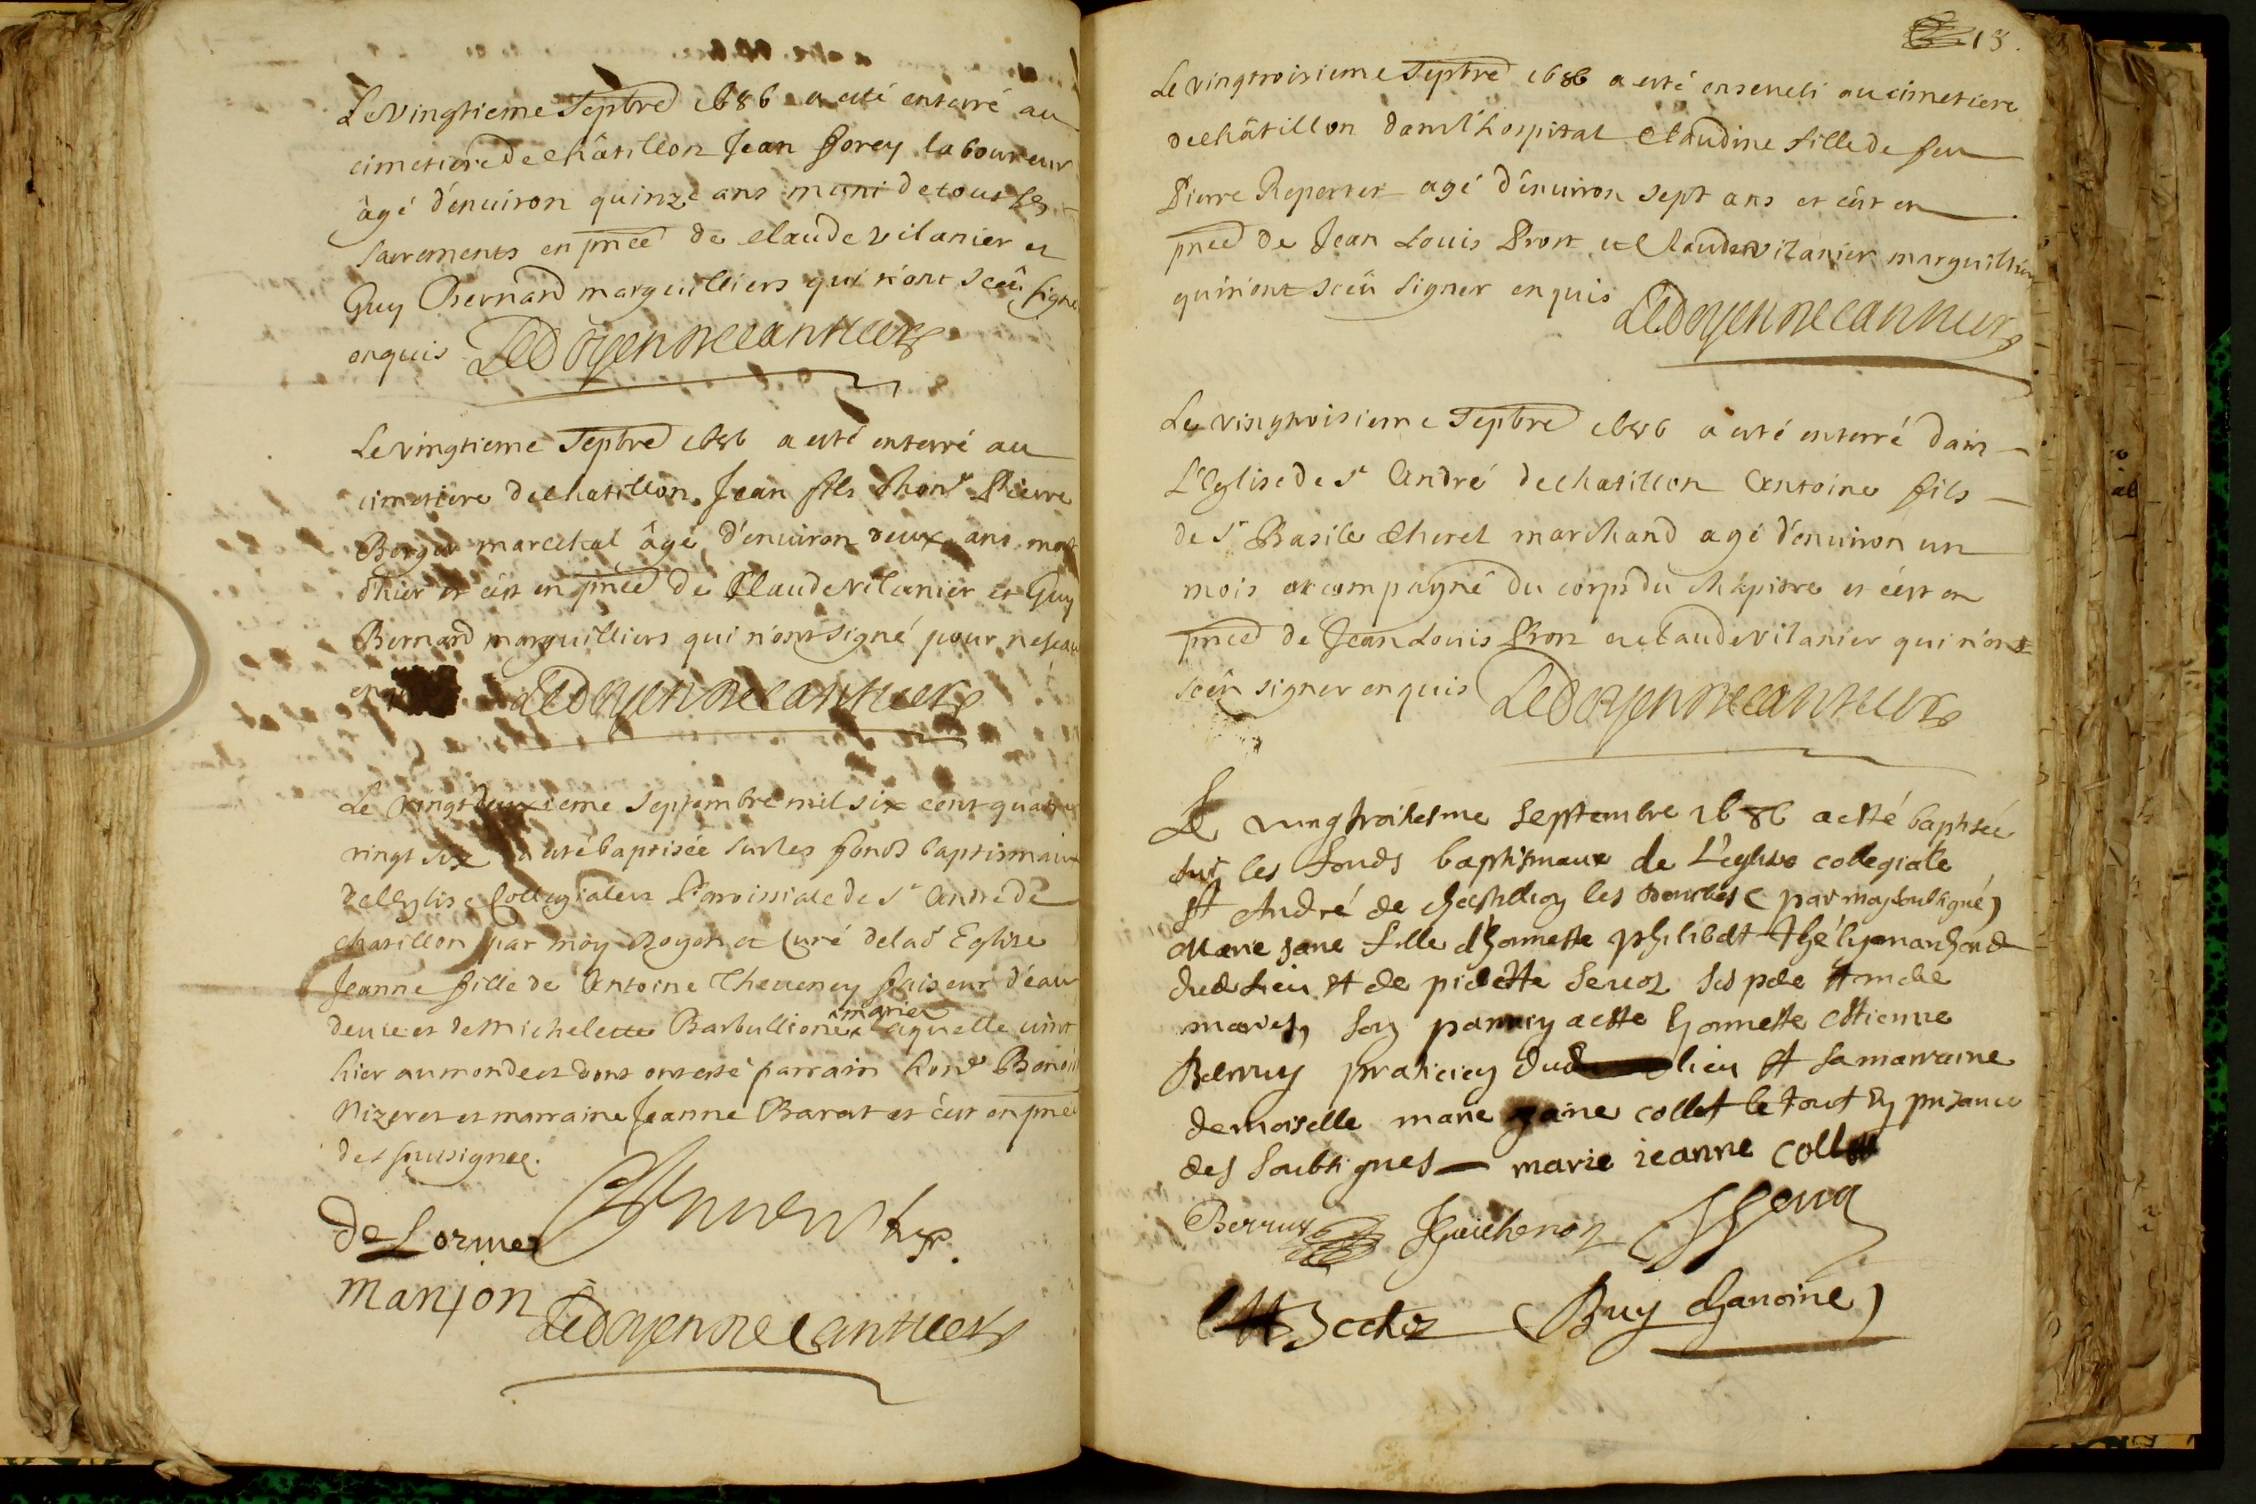 Le vingtieme Septbre 1686 a eté enterré au
cimetiere de châtillon Jean forey laboureur
âgé d'enuiron quinze ans muni de tous les
sacrements en pnce de Claude vilanier et
Guy Bernard marguilliers qui n'ont sceû signer
enquis Ledoyen necanhuers
Le vingtieme Septbre 1686 a esté enterré au
cimetiere de chatillon Jean fils d'hone Pierre
Berger marechal âgé d'enuiron deux ans mort
d'hier et c'est en pnce de Claude vilanier et Guy
Bernard marguilliers qui n'ont signé pour ne scau
Ledoyen necanhuers
Le vingt deuxieme Septembre mil six cent quatre
vingt six a eté baptisée sur les fonds baptismaux
de l'Eglise Collegiale et Paroissiale de St André de
chatillon par moy Doyen et Curé de lad Eglise
Jeanne fille de Antoine Theueney faiseur d'eau
de uie et de Michelette Barbullione mariez laquelle uint
hier au monde et dont ont esté parrain hone Benoist
Nizeret et marraine Jeanne Barat et c'est en pnce
des soussignee.
De Lorme
manjon Ledoyen necanhuers
13.
Le vingtroisieme Septbre 1686 a esté enseueli au cimetiere
de châtillon dans l'hospital Claudine fille de feu
Pierre Reperter agé d'enuiron sept ans et c'est en
pnce de Jean Louis Pron et Claude vilanier marguilliers
qui n'ont sceû signer enquis Ledoyen necanhuers
Le vingtroisieme Septbre 1686 a esté enterré dans
L'Eglise de St André de chatillon Antoine fils
de Sr Basile Cheret marchand agé d'enuiron un
mois accompagné du corps du chapitre et c'est en
pnce de Jean Louis Pron et Claude vilanier qui n'ont
sceû signer enquis Ledoyen necanhuers
Le vingtroisiesme septembre 1686 a esté baptisée
sur les fonds baptismaux de L'eglise collegiale
St André de chastillon les dombes (par moy soubsigné)
Marie jane fille d'honneste philibert marchand
dud lieu et de pierette seruoz ses pere et mere
mariés, son parrin a esté honneste Estienne
Berruy praticien dud lieu et sa marraine
demoiselle marie jaine collet le tout en presance
des soubsignes marie ieanne collet
Berruy JGuichenon
Buy chanoine)